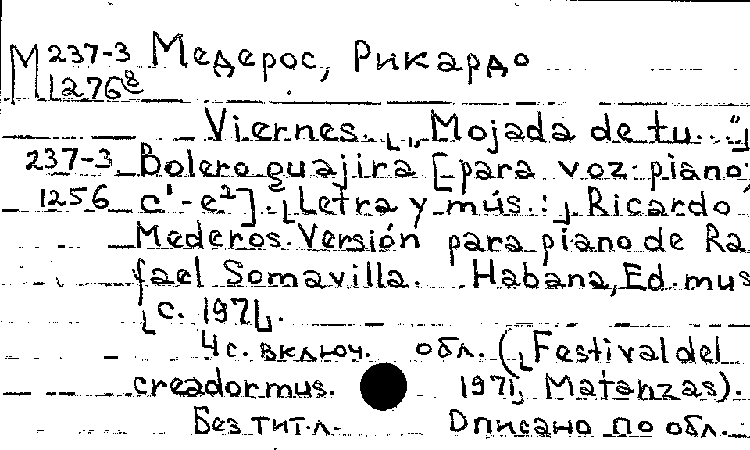 М 237-3 Медерос, Рикардо
1276⁸
Viernes. [„Mojada de tu..."]
237-3 Bolero guajira [para voz-piano,
1256 c¹-e²]. [Letra y mús.:] Ricardo
Mederos. Versión para piano de Ra
fael Somavilla. Habana, Ed. mus
[c. 1971].
4 с. включ. обл. ([Festival del
creador mus. 1971], Matanzas).
Без тит.л. Описано по обл.